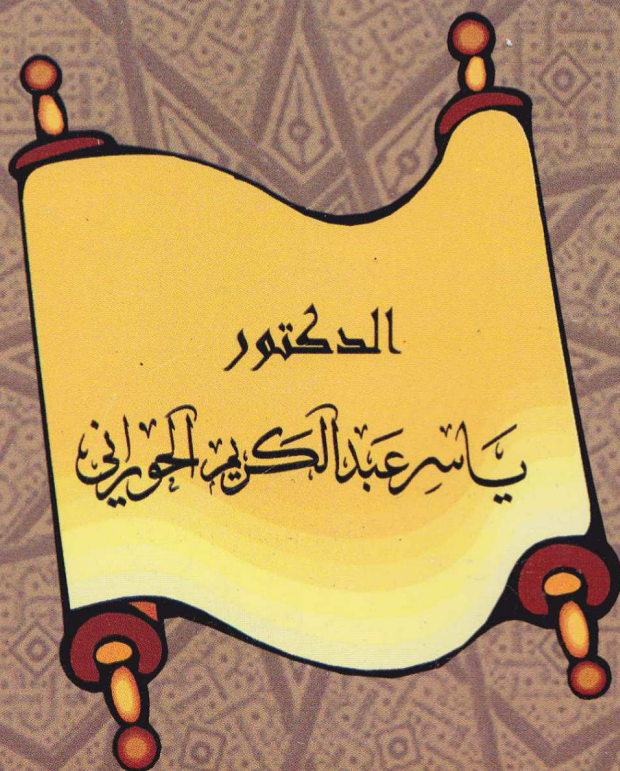 الدكتور
يَاسِر عَبدالكَريم الحوراني